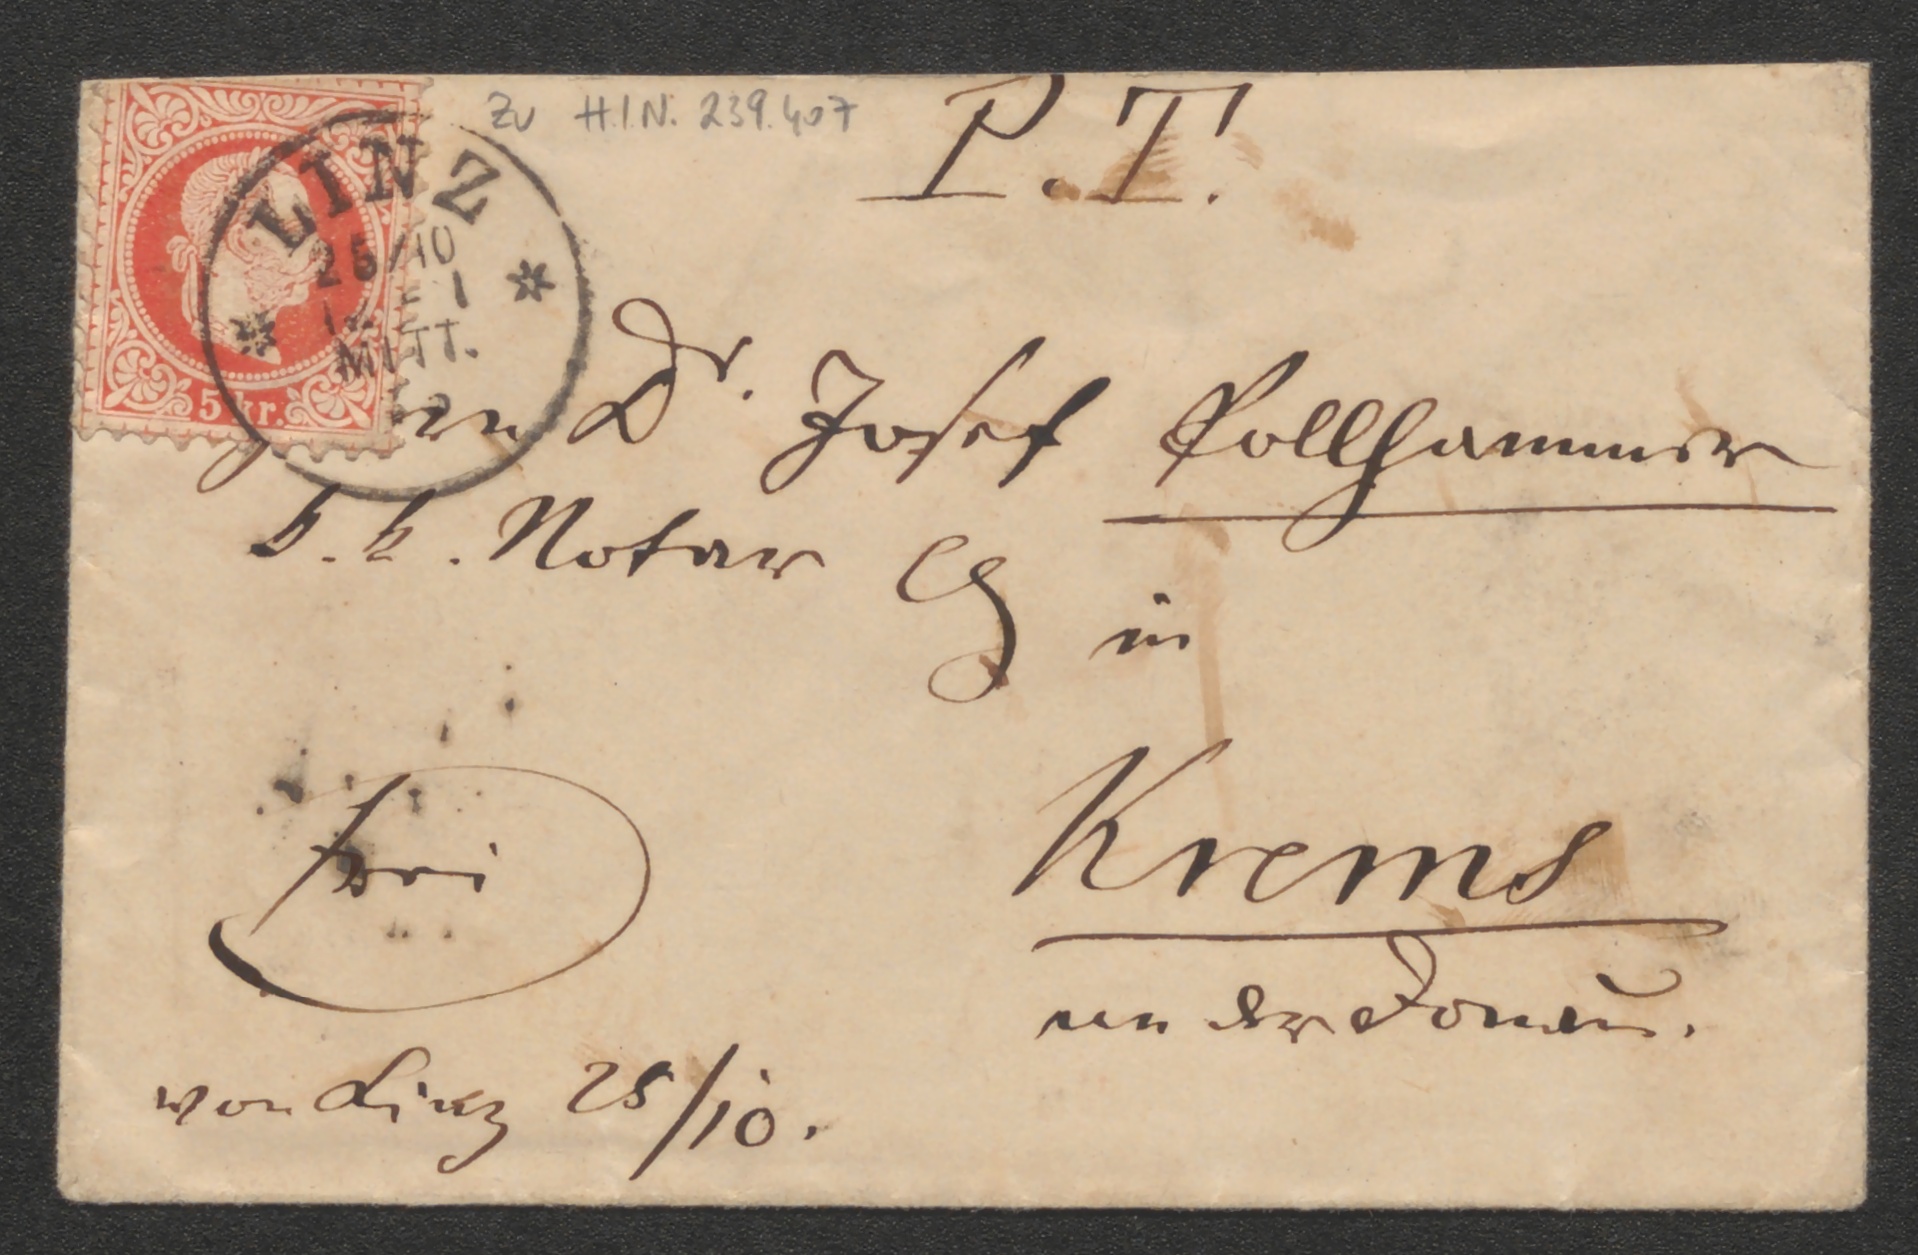 Zu H.I.N. 239.407
P. T.
LINZ
25/10
12 - 1
MITT.
5 kr.
Herrn Dr. Josef Pollhammer
k. k. Notar
in
Krems
an der Donau.
frei
von Linz 25/10.